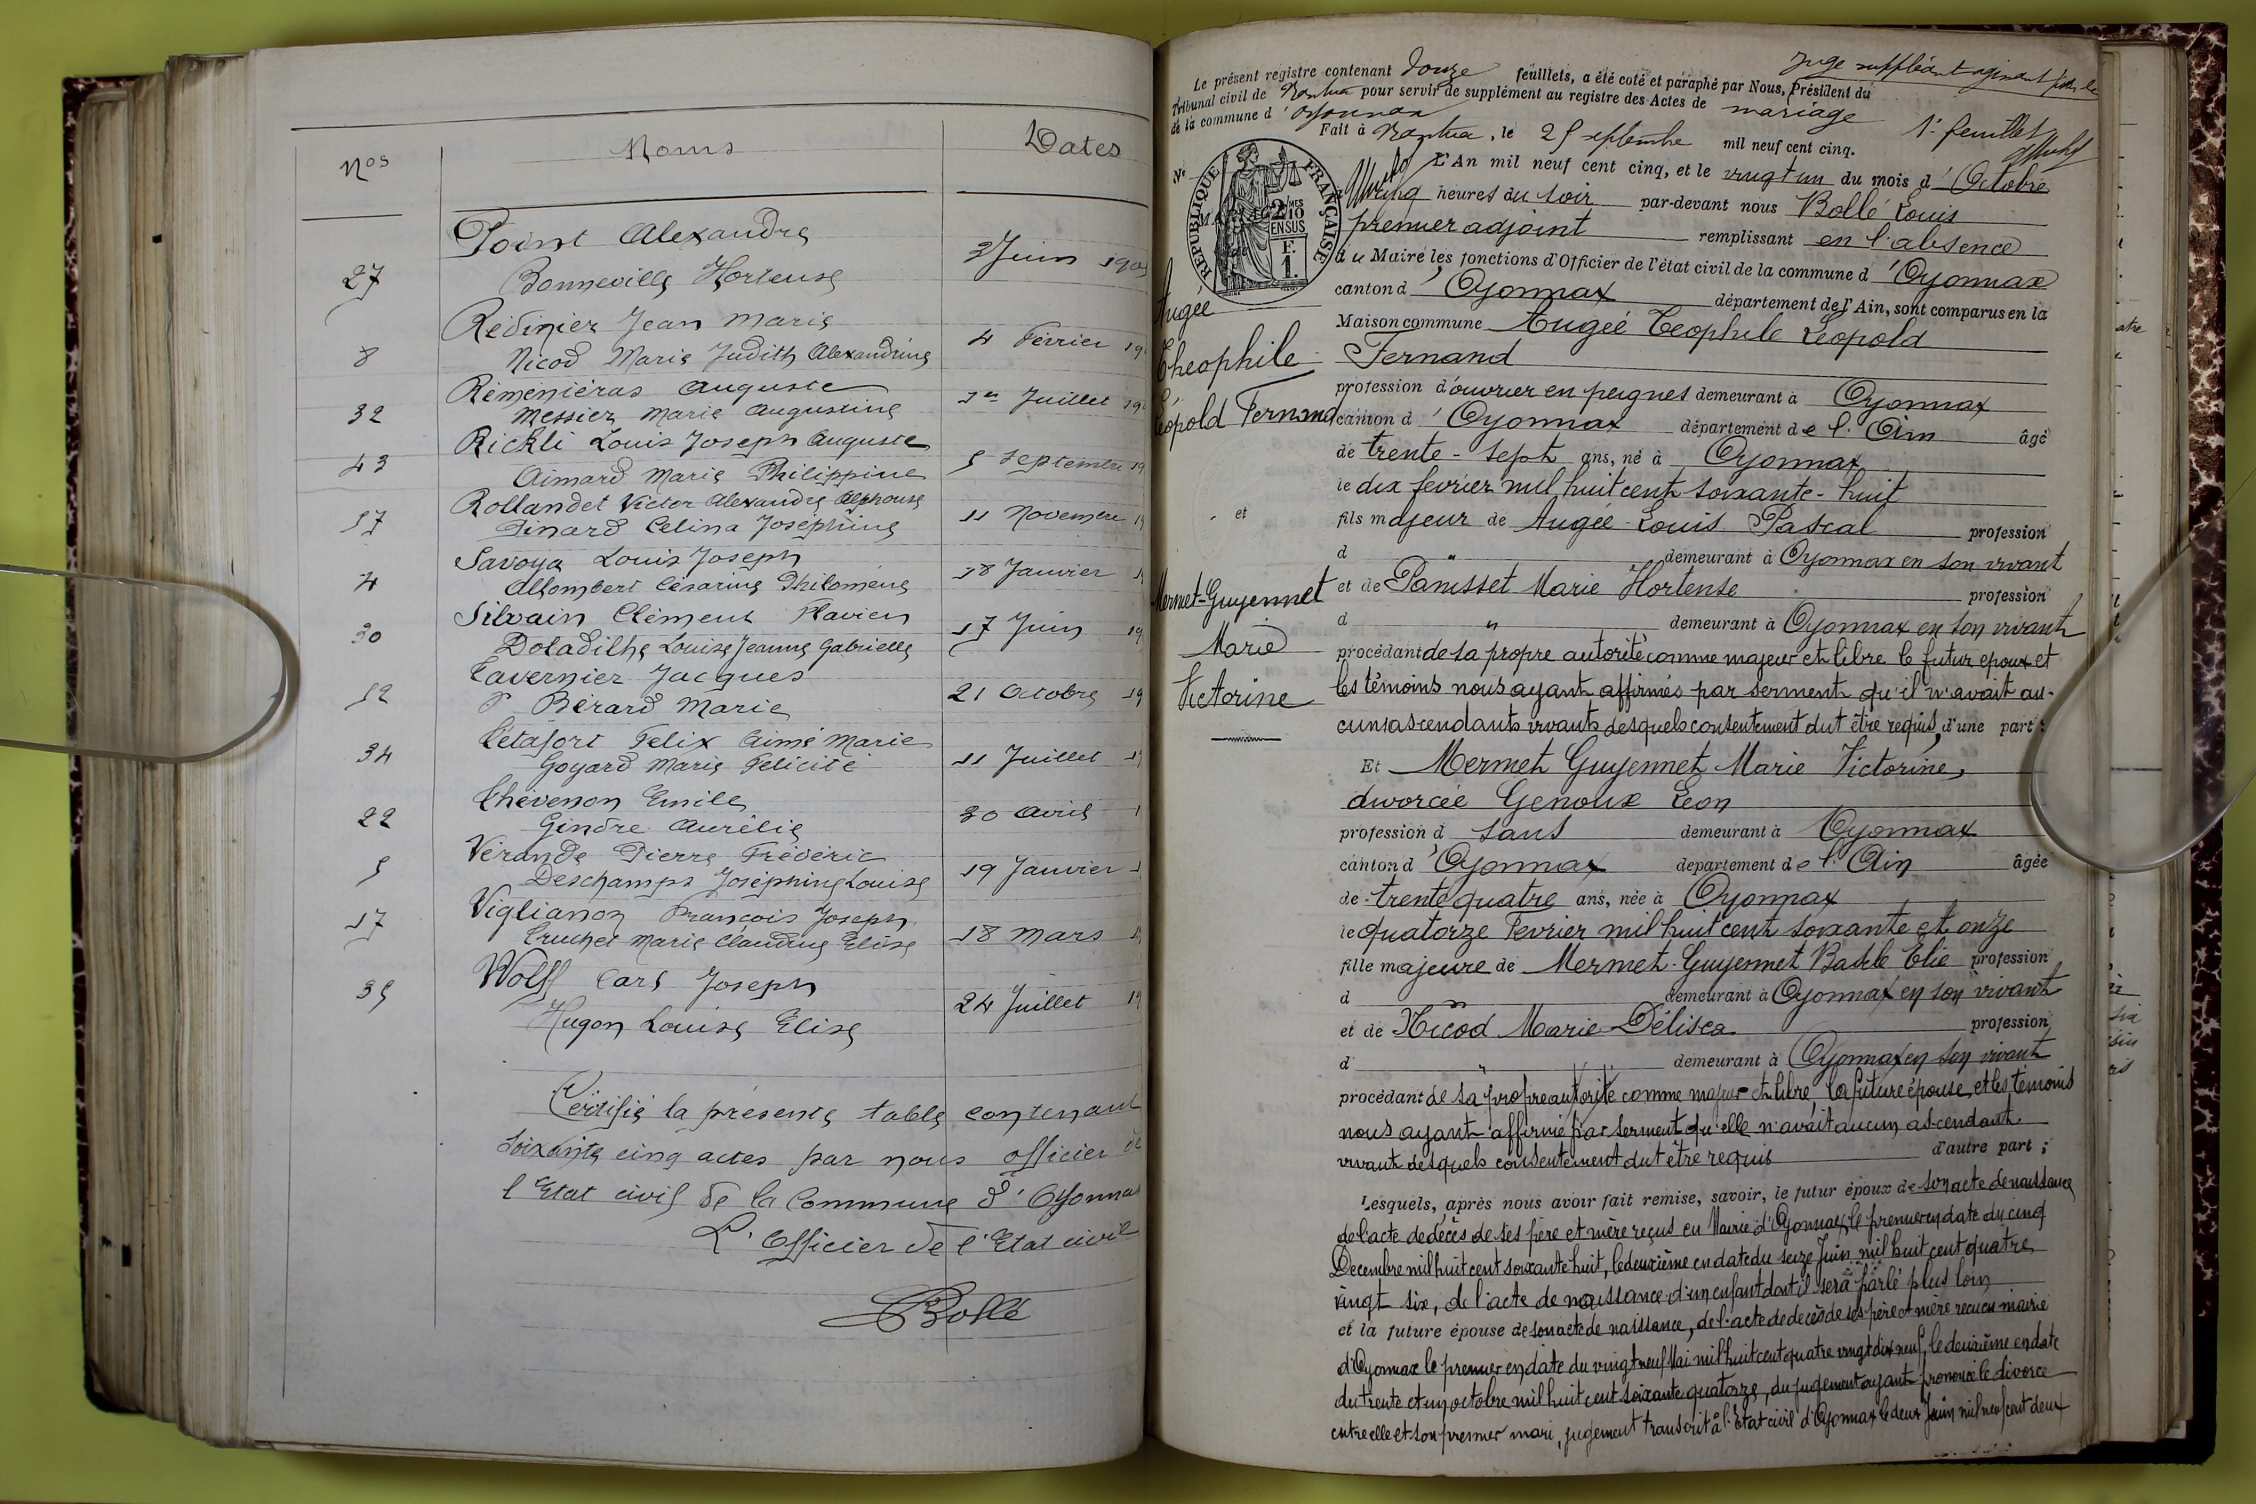 Nos Noms Dates
Point Alexandre
27 Bonneville Hortense 3 Juin 190
Rédinier Jean Marie
8 Nicod Marie Judith Alexandrine 4 Février 19
Réméniéras Auguste
32 Messiez Marie Augustine 1er Juillet 19
Rickli Louis Joseph Auguste
43 Aimard Marie Philippine 5 Septembre 19
Rollandet Victor Alexandre Alphonse
57 Pinard Célina Joséphine 11 Novembre 19
Savoye Louis Joseph
4 Allombert Césarine Philomène 18 Janvier 1
Silvain Clément Flavien
30 Doladilhe Louise Jeanne Gabrielle 17 Juin 19
Tavernier Jacques
52 Bérard Marie 21 Octobre 19
Tétafort Felix Aimé Marie
34 Goyard Marie Félicité 11 Juillet 19
Thévenon Emile
22 Gindre Aurélie 30 Avril 1
Vérande Pierre Frédéric
5 Deschamps Joséphine Louise 19 Janvier 1
Viglianon François Joseph
17 Truchet Marie Claudine Elise 18 Mars 19
Wolff Carl Joseph
35 Hugon Louise Elise 24 Juillet 19
Certifié la présente table contenant
soixante cinq actes par nous officier de
l'Etat civil de la Commune d'Oyonnax
L'Officier de l'Etat civil
Bollé
Juge suppléant agissant pour le
Le présent registre contenant douze feuillets, a été coté et paraphé par Nous, Président du
Tribunal civil de Nantua pour servir de supplément au registre des Actes de mariage
de la commune d'Oyonnax
Fait à Nantua, le 25 septembre mil neuf cent cinq. 1er feuillet
RÉPUBLIQUE FRANÇAISE
2/10 EN SUS
F. 1.
No
L'An mil neuf cent cinq, et le vingt un du mois d'Octobre
cinq heures du soir par-devant nous Bollé Louis
premier adjoint remplissant en l'absence
du Maire les fonctions d'Officier de l'état civil de la commune d'Oyonnax
canton d'Oyonnax département de l'Ain, sont comparus en la
Maison commune Augée Teophile Leopold
Fernand
profession d'ouvrier en peignes demeurant à Oyonnax
canton d'Oyonnax département de l'Ain âgé
de trente-sept ans, né à Oyonnax
le dix fevrier mil huit cent soixante-huit
fils majeur de Augée Louis Pascal profession
d " demeurant à Oyonnax en son vivant
et de Panisset Marie Hortense profession
d " demeurant à Oyonnax en son vivant
procédant de sa propre autorité comme majeur et libre le futur epoux et
les témoins nous ayant affirmés par serment qu'il n'avait au-
cuns ascendants vivants desquels consentement dut être requis, d'une part :
Et Mermet Guyennet Marie Victorine,
divorcée Genoux Leon
profession d sans demeurant à Oyonnax
canton d'Oyonnax département de l'Ain âgée
de trente quatre ans, née à Oyonnax
le quatorze Fevrier mil huit cent soixante et onze
fille majeure de Mermet-Guyennet Basile Elie profession
d " demeurant à Oyonnax en son vivant
et de Nicod Marie Délisca profession
d " demeurant à Oyonnax en son vivant
procédant de sa propre autorité comme majeure et libre, la future épouse, et les temoins
nous ayant affirmé par serment qu'elle n'avait aucun ascendant
vivant desquels consentement dut être requis d'autre part ;
Lesquels, après nous avoir fait remise, savoir, le futur époux de son acte de naissance,
de l'acte de décès de ses père et mère reçus en Mairie d'Oyonnax, le premier en date du cinq
Decembre mil huit cent soixante huit, le deuxième en date du seize Juin mil huit cent quatre
vingt six, de l'acte de naissance d'un enfant dont il sera parlé plus loin
et la future épouse de son acte de naissance, de l'acte de décès de ses père et mère reçu en mairie
d'Oyonnax le premier en date du vingt neuf Mai mil huit cent quatre vingt dix neuf, le deuxième en date
du trente et un octobre mil huit cent soixante quatorze, du jugement ayant prononcé le divorce
entre elle et son premier mari, jugement transcrit à l'Etat civil d'Oyonnax le deux Juin mil neuf cent deux
Augée
Theophile
Léopold Fernand
et
Mermet-Guyennet
Marie
Victorine